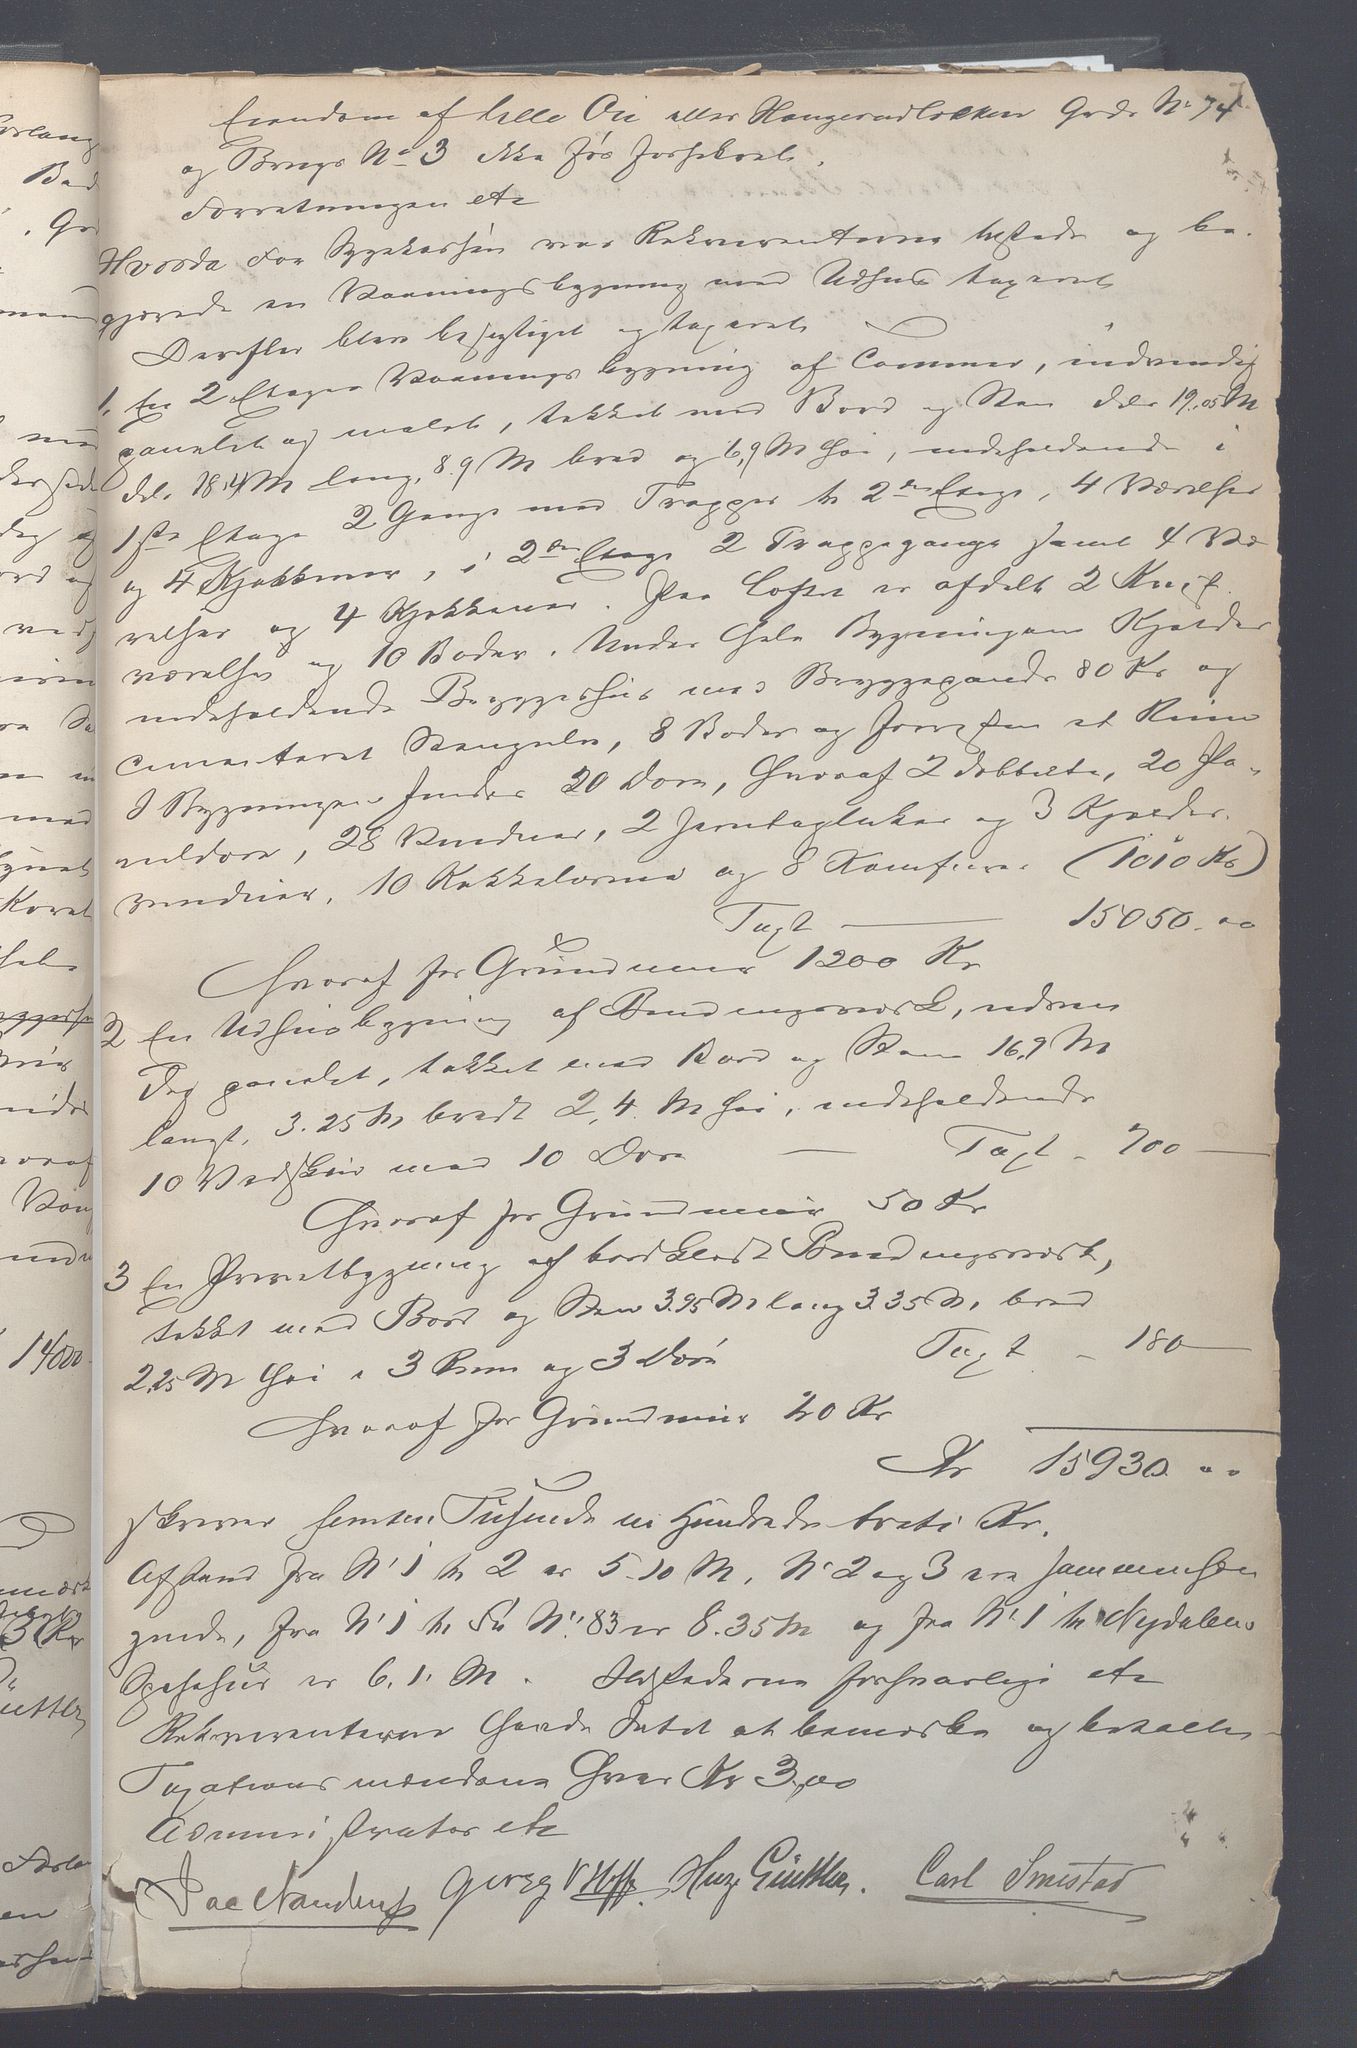 Eiendom af Lille Øie eller Haugerudløkken Gards No 74
og Brugs No 3 ikke før forsikret.
Forretningen etc
Hvorda for Sygekassen var Rekvirenterne tilstede og be-
gjærede en Vaaningsbygning med Udhus taxeret
Derefter blev besigtiget og taxeret
1. En 2 Etages Vaaningsbygning af Tømmer, indvendig
panelet og malet, tækket med Bord og Sten dels 19,05 M
dels 18,4 M lang, 8.9 M bred og 6,9 M høi, indeholdende i
1ste Etage 2 Gange med Trapper til 2den Etage, 4 Værelser
og 4 Kjøkkener, i 2den Etage 2 Trappegange samt 4 Væ-
relser og 4 Kjøkkener. Paa Loftet er afdelt 2 Kvist-
værelser og 10 Boder. Under hele Bygningen Kjelder
indeholdende Bryggerhus med Bryggepande 80 Kr og
cementeret Stengulv, 8 Boder og
I Bygningen findes 20 Døre, hvoraf 2 dobbelte, 20 Pa-
neldøre, 28 Vinduer, 2 Jerntagluker og 3 Kjelder-
vinduer, 10 Kakkelovne og 8 Komfurer (1010 Kr)
Taxt 15050.00
Hvoraf for Grundmur 1200 Kr
2 En Udhusbygning af Bindingsværk, udven-
dig panelet, tækket med Bord og Sten 16,9 M
langt, 3.25 M bredt 2,4 M høi, indeholdende
10 Vedskur med 10 Døre Taxt 700
Hvoraf for Grundmur 50 Kr
3 En Privetbygning af bordklædt Bindingsværk,
tækket med Bord og Sten 3.95 M lang 3.35 M. bred
2,25 M høi i 3 Rum og 3 Døre Taxt 180
Hvoraf for Grundmur 20 Kr
Kr 15930.00
skriver femten Tusinde ni Hundrede treti Kr.
Afstand fra No 1 til 2 er 5.10 M, No 2 og 3 ere sammenhæn-
gende, fra No 1 til No 83 er 8.35 M og fra No 1 til Nydalens
Spisehus er 6,1 M. Ildstederne forsvarlige etc
Rekvirenterne havde Intet at bemærke og betalte
Taxationsmændene hver Kr 3,00
Administrator etc
Georg Hugo Günther. Carl Smestad
14000